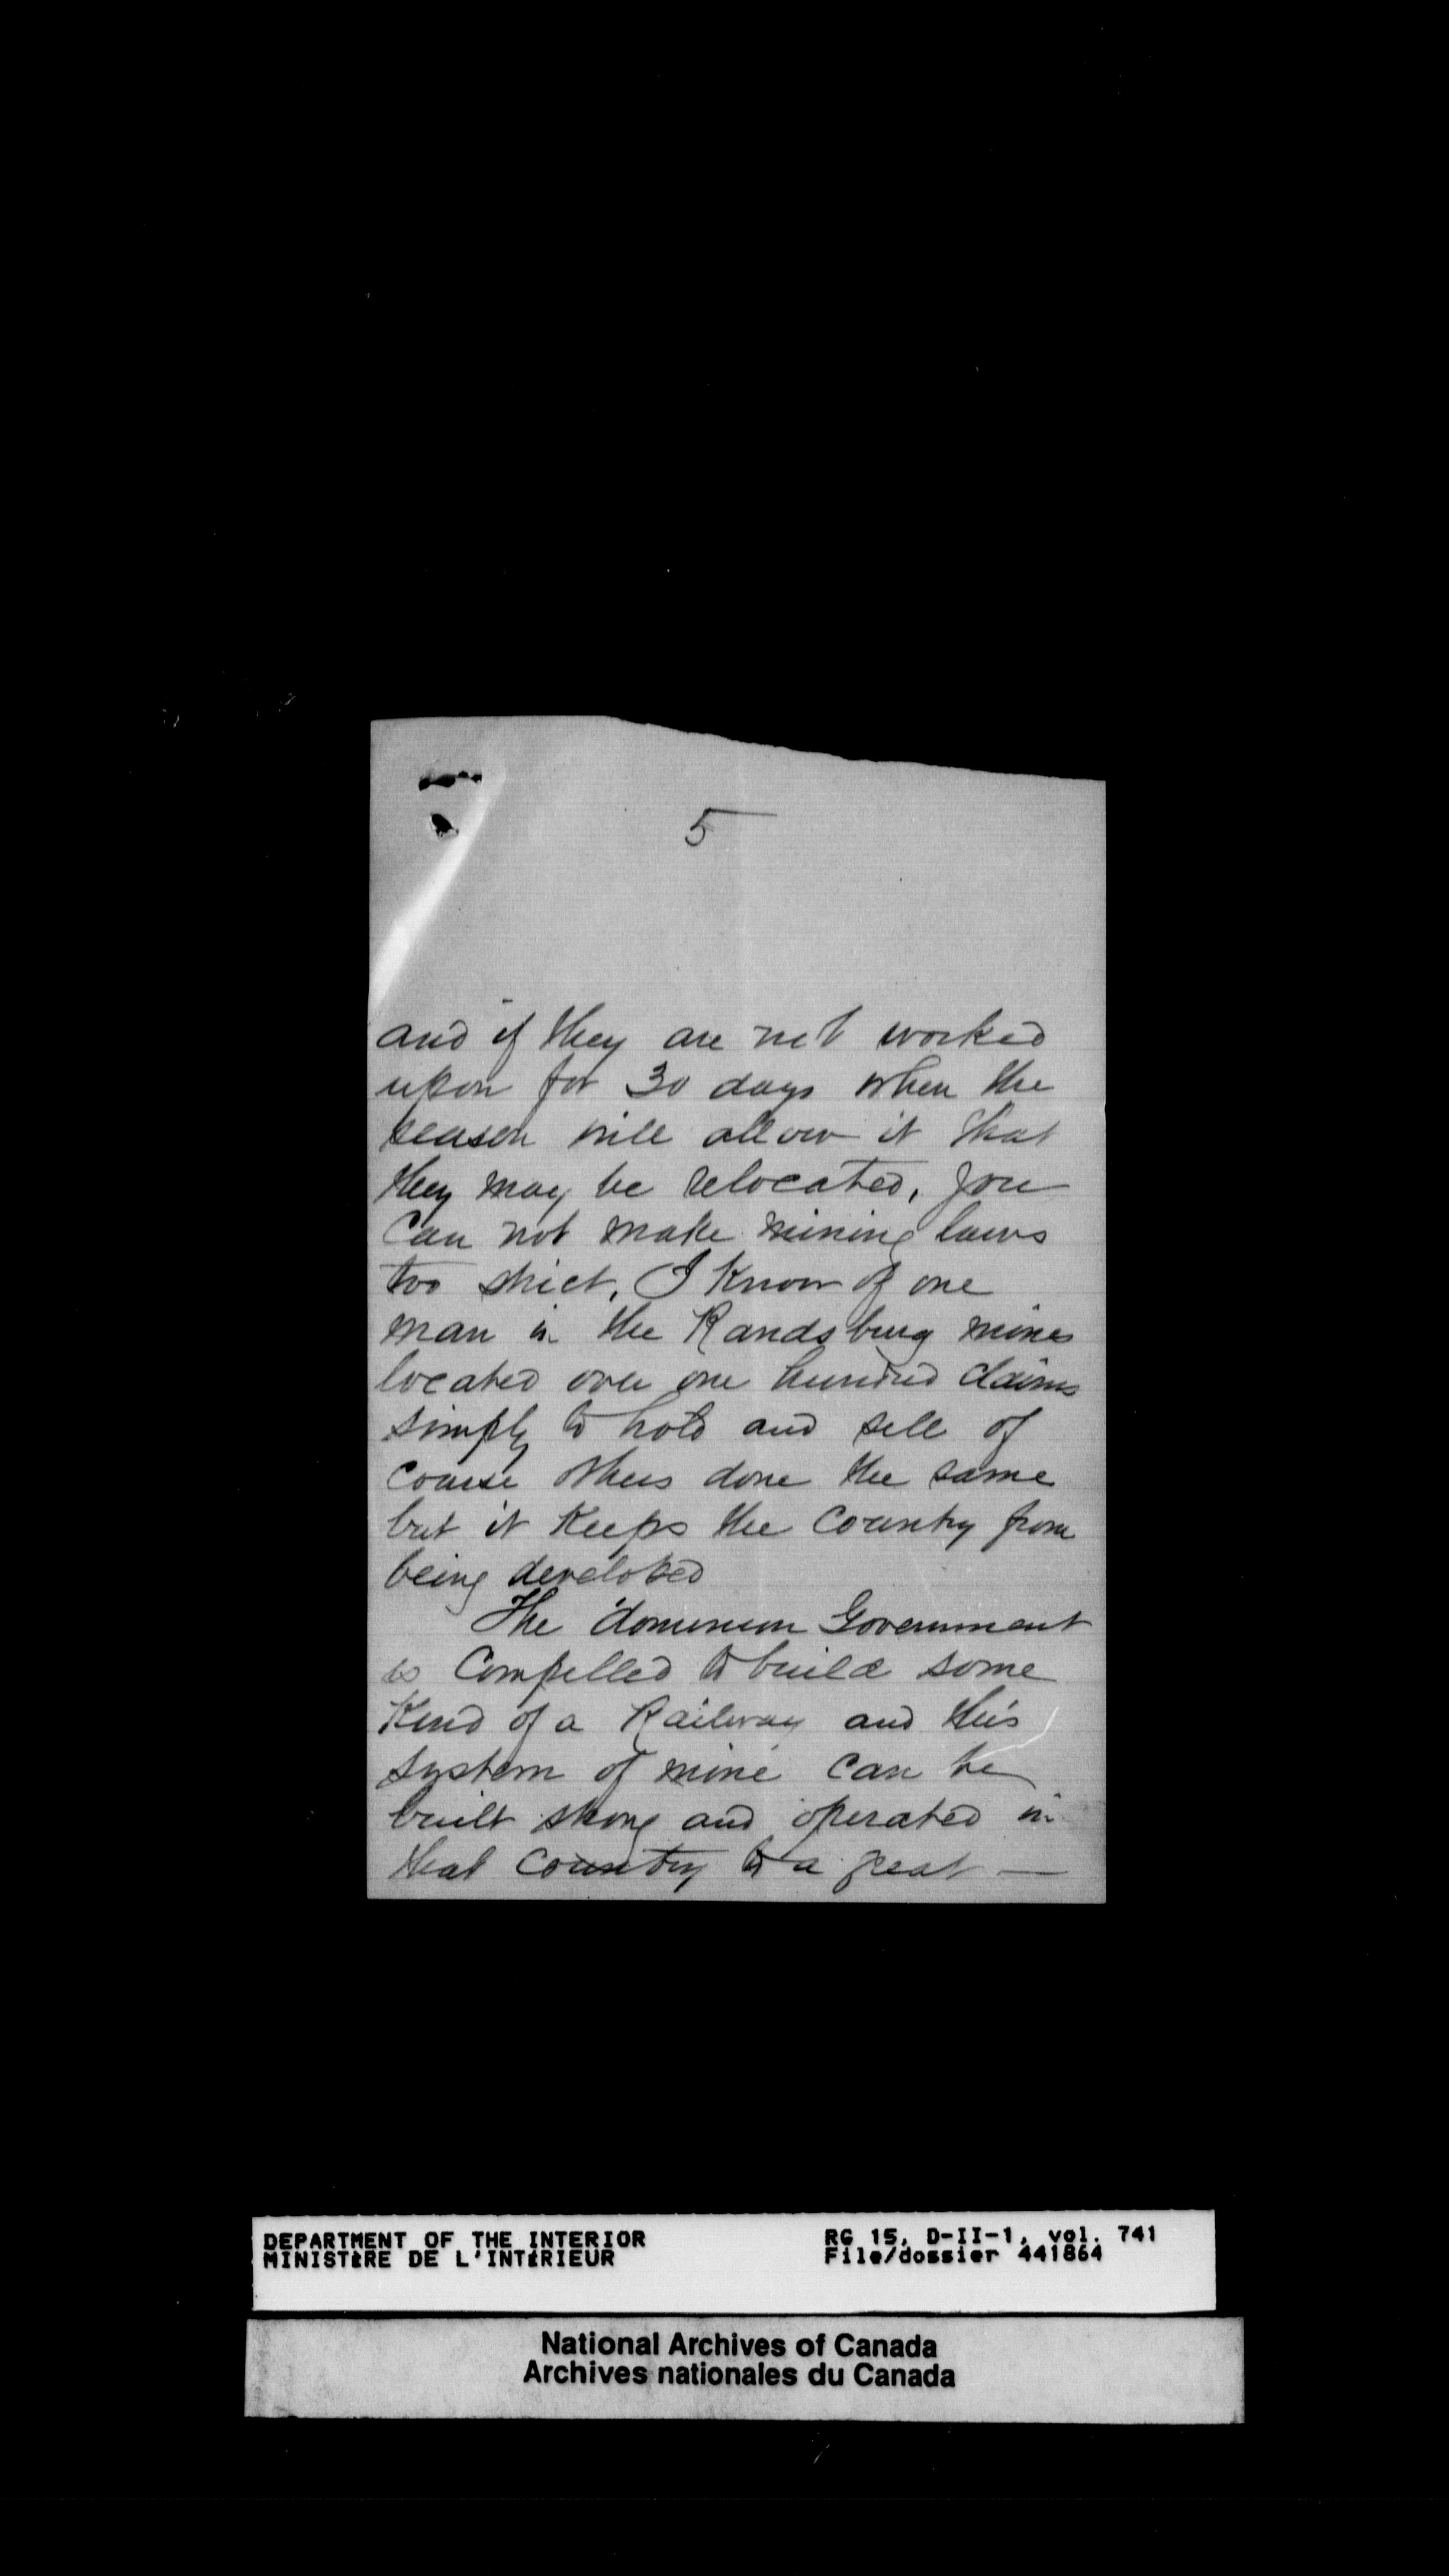 5
and if they are not worked
upon for 30 days when the
season will allow it that
they may be relocated, you
can not make mining laws
too strict, I know of one
man in the Randsburg mines
located over one hundred claims
simply to hold and sell of
course others done the same
but it Keeps the Country from
being developed
The dominion Government
is Compelled to build some
Kind of a Railway and this
system of mine can be
built strong and operated in
that country to a great —
DEPARTMENT OF THE INTERIOR
MINISTÈRE DE L'INTÉRIEUR
RG 15, D-II-1, vol. 741
File/dossier 441864
National Archives of Canada
Archives nationales du Canada